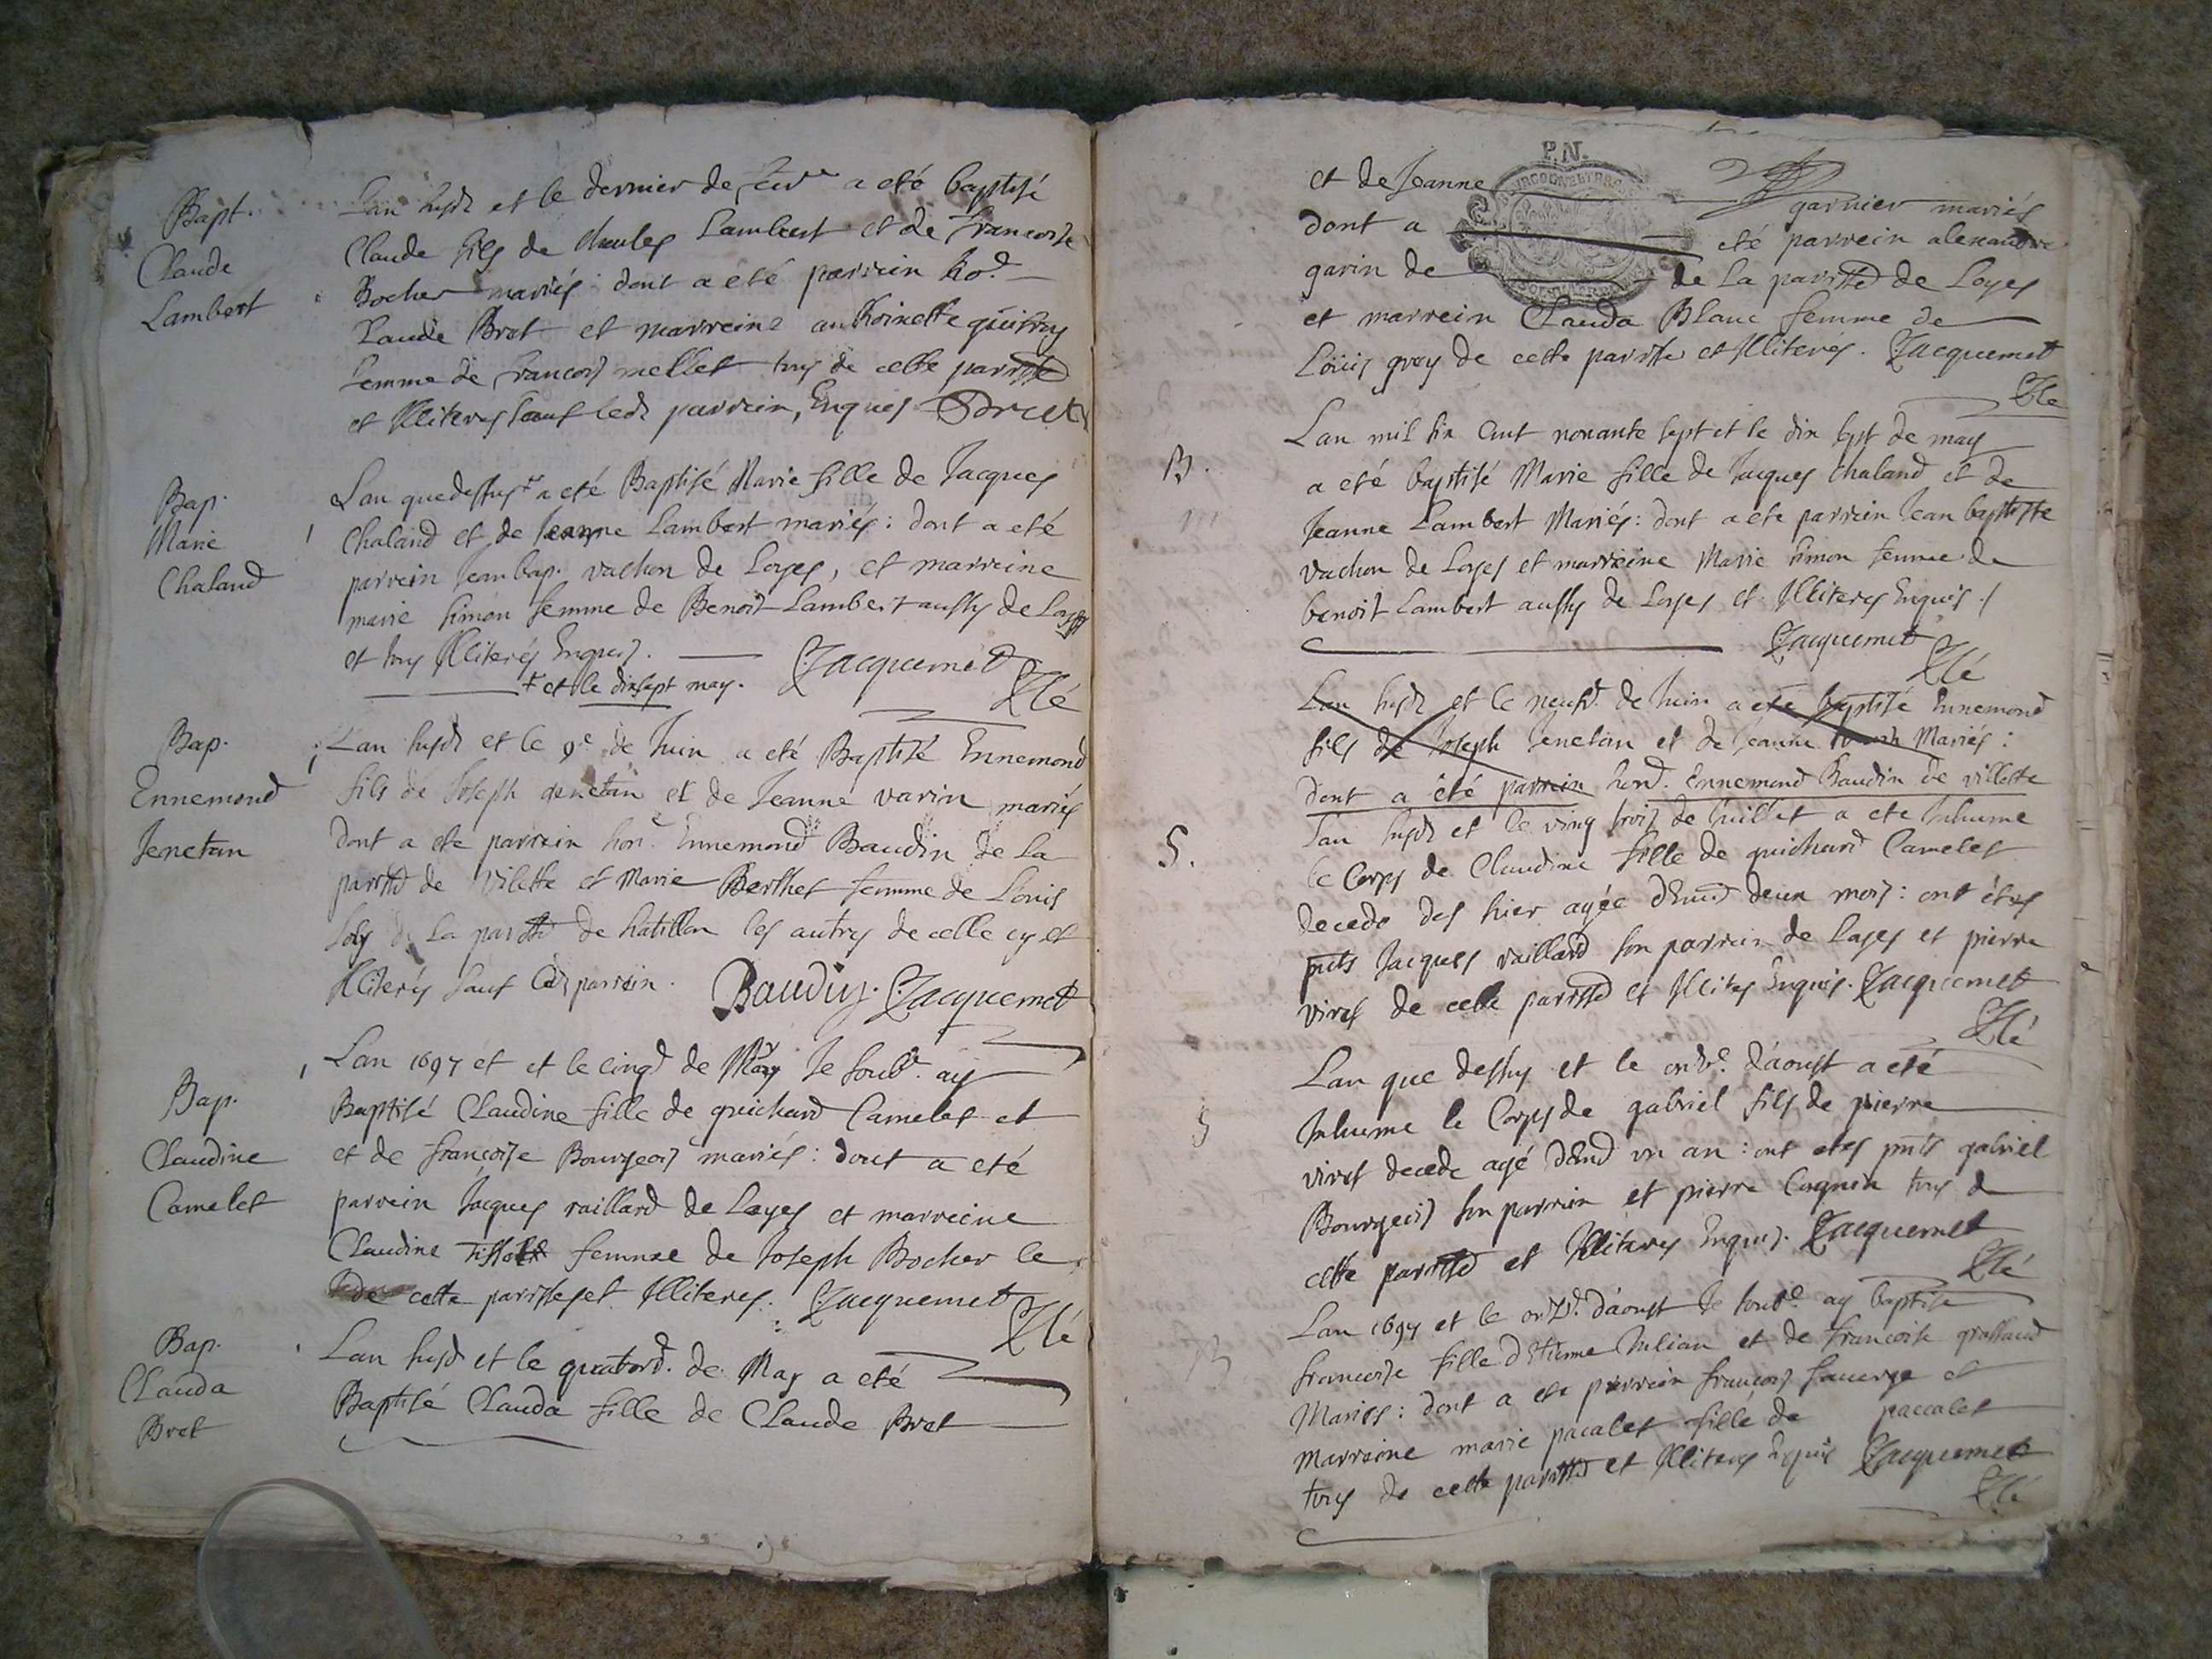 Bapt.
Claude
Lambert
Lan susd et le dernier de fevr a eté baptisé
Claude fils de charles Lambert et de francoise
Bocher mariés: dont a été parrein ho.
Claude Bret et marreine anthoinette
femme de francois mellet tous de cette parrsse
et Illiterés sauf led parrein, Enquis Bret
Bap.
Marie
Chaland
Lan que dessus + a eté Baptisé Marie fille de Jacques
Chaland et de Jeanne Lambert mariés: dont a eté
parrein Jean bap. vachon de Loyes, et marreine
marie simon femme de Benoit Lambert aussy de Loyes
et tous Illiterés Enquis. Jacquemet
+ et le dixsept may. Vre
Bap.
Ennemond
Jenetan
Lan susd et le 9e de Juin a eté Baptisé Ennemond
fils de Joseph genetan et de Jeanne varin mariés
dont a ete parrein hon. Ennemond Baudin de la
parrsse de Vilette et Marie Berthet femme de Louis
Joly de la parrsse de hatillon les autres de celle cy et
Illiterés sauf led parrein. Baudin. Jacquemet
Bap.
Claudine
Camelet
Lan 1697 et et le cinqe de May Je soube. ay
Baptisé Claudine fille de guichard Camelet et
et de francoise Bourgeois mariés: dont a eté
parrein Jacques raillard de Loyes et marreine
Claudine femme de Joseph Bocher le
de cette parrsse et Illiteres. Jacquemet
Bap.
Clauda
Bret
Lan susd et le quatord. de May a eté
Baptisé Clauda fille de Claude Bret
P.N.
et de Jeanne garnier mariés
dont a eté parrein alexandre
garin de de la parrsse de Loyes
et marrein Clauda Blanc femme de
Loüis grey de cette parrsse et Illiteres. Jacquemet
B.
Lan mil six Cent nonante sept et le dix sept de may
a eté baptisé Marie fille de Jacques Chaland et de
Jeanne Lambert Mariés: dont a ete parrein Jean baptiste
vachon de Loyes et marreine Marie simon femme de
benoit Lambert aussy de Loyes et Illiteres Enquis. /
Jacquemet
Lan susd et le neufe. de Juin a eté baptisé Ennemond
fils de Joseph Jenetan et de Jeanne Mariés:
dont a été parrein hon. Ennemond Baudin de villette
S.
Lan susd et le ving trois de Juillet a ete Inhume
le Corps de Claudine fille de guichard Camelet
decede des hier agée d'Envd deux mois: ont étes
pnts Jacques raillard son parrein de Loyes et pierre
viret de cette parrsse et Illites Enquis. Jacquemet
S
Lan que dessus et le onze. d'aoust a eté
Inhume le Corps de gabriel fils de pierre
viret decede agé d'Envd un an: ont etes pnts gabriel
Bourgeois son parrein et pierre tous de
cette parrsse et Illiteres Enquis. Jacquemet
B
Lan 1697 et le onze. d'aoust Je soube. ay baptisé
francoise fille d'Etienne Julian et de francoise
Mariés: dont a ete parrein françois et
marreine marie pacalet fille de paccalet
tous de cette parrsse et Illiteres Jacquemet